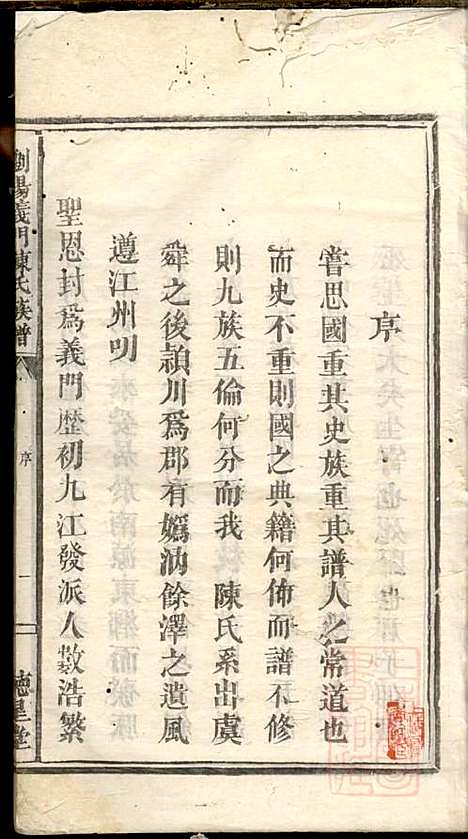 序
嘗思國重其史族重其譜人之常道也
而史不重則國之典籍何佈而譜不修
則九族五倫何分而我 陳氏系出虞
舜之後頴川為郡有嬀汭餘澤之遺風
遵江州叨
聖恩封為義門歷初九江發派人數浩繁
劉陽義門陳氏族譜
序
一
德星堂